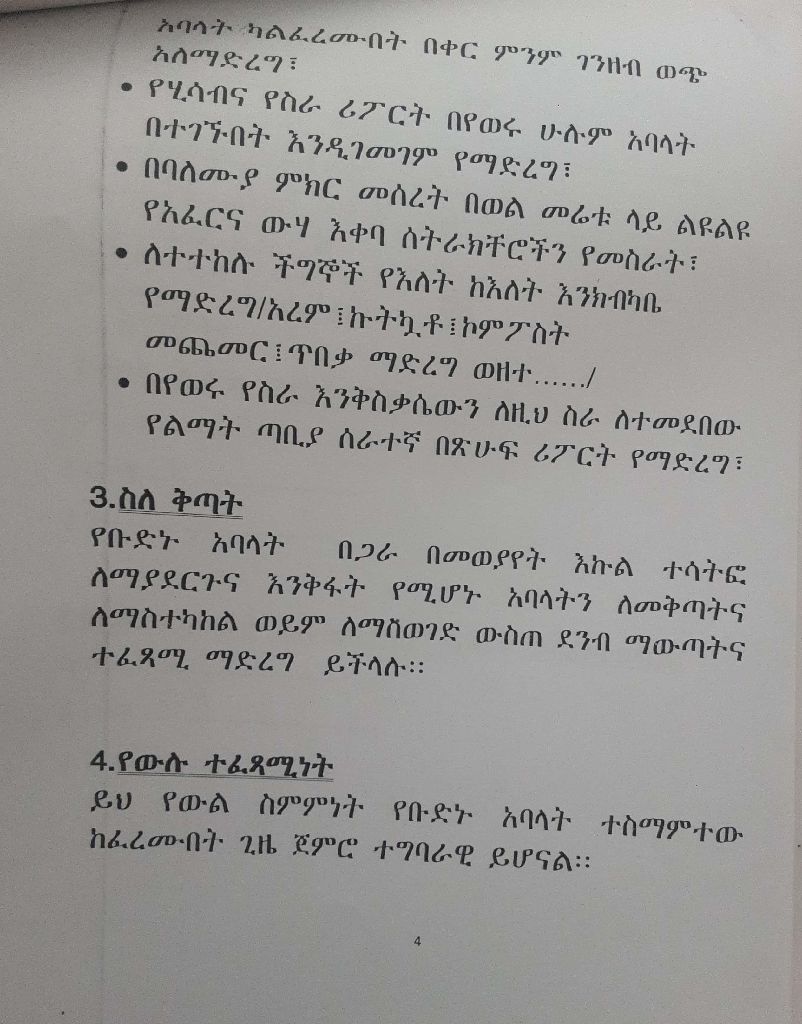 አባላት ካልፈረሙበት በቀር ምንም ገንዘብ ወጭ
አለማድረግ፣
• የሂሳብና የስራ ሪፖርት በየወሩ ሁሉም አባላት
በተገኙበት እንዲገመገም የማድረግ፣
• በባለሙያ ምክር መሰረት በወል መሬቱ ላይ ልዩልዩ
የአፈርና ውሃ እቀባ ስትራክቸሮችን የመስራት፣
• ለተተከሉ ችግኞች የእለት ከእለት እንክብካቤ
የማድረግ/አረም፤ኩትኳቶ፤ኮምፖስት
መጨመር፤ጥበቃ ማድረግ ወዘተ....../
• በየወሩ የስራ እንቅስቃሴውን ለዚህ ስራ ለተመደበው
የልማት ጣቢያ ሰራተኛ በጽሁፍ ሪፖርት የማድረግ፣
3.ስለ ቅጣት
የቡድኑ አባላት በጋራ በመወያየት እኩል ተሳትፎ
ለማያደርጉና እንቅፋት የሚሆኑ አባላትን ለመቅጣትና
ለማስተካከል ወይም ለማስወገድ ውስጠ ደንብ ማውጣትና
ተፈጻሚ ማድረግ ይችላሉ፡፡
4.የውሉ ተፈጻሚነት
ይህ የውል ስምምነት የቡድኑ አባላት ተስማምተው
ከፈረሙበት ጊዜ ጀምሮ ተግባራዊ ይሆናል፡፡
4